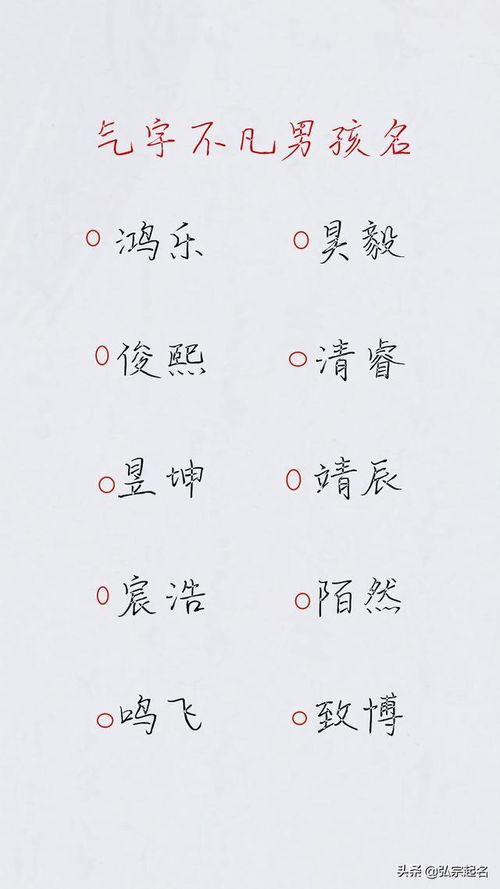 气宇不凡男孩名
鸿乐 昊毅
俊熙 清睿
昱坤 靖辰
宸浩 陌然
鸣飞 致博
头条 @弘宗起名